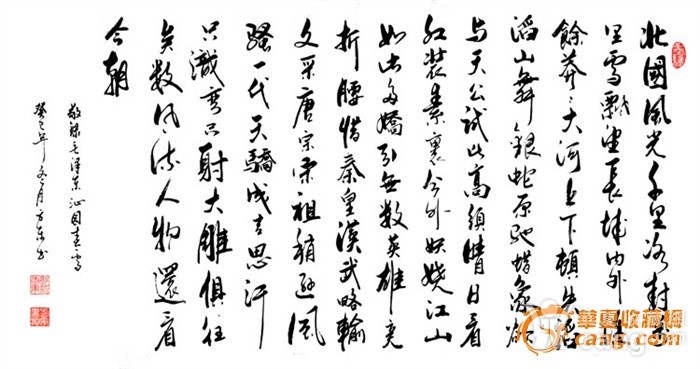 北國風光千里冰封萬
里雪飄望長城内外惟
餘莽々大河上下頓失滔
滔山舞銀蛇原馳蠟象欲
与天公試比高須晴日看
紅裝素裹分外妖嬈江山
如此多嬌引無數英雄競
折腰惜秦皇漢武略輸
文采唐宗宋祖稍遜風
騷一代天驕成吉思汗
只識彎弓射大雕俱往
矣數風流人物還看
今朝
敬錄毛澤東沁園春雪
癸巳年冬月方东书
華夏收藏网
cang.com